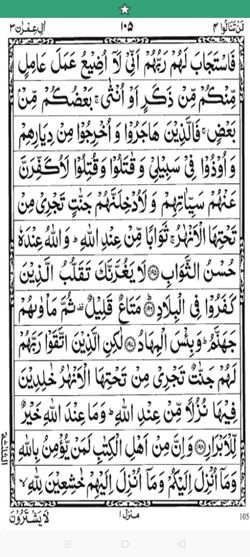 لَنْ تَنَالُوا ٤ ١٠٥ اٰلِ عِمْرٰن ٣
فَاسْتَجَابَ لَهُمْ رَبُّهُمْ اَنِّیْ لَاۤ اُضِیْعُ عَمَلَ عَامِلٍ
مِّنْكُمْ مِّنْ ذَكَرٍ اَوْ اُنْثٰی ۚ بَعْضُكُمْ مِّنْۢ
بَعْضٍ ۚ فَالَّذِیْنَ هَاجَرُوْا وَ اُخْرِجُوْا مِنْ دِیَارِهِمْ
وَ اُوْذُوْا فِیْ سَبِیْلِیْ وَ قٰتَلُوْا وَ قُتِلُوْا لَاُكَفِّرَنَّ
عَنْهُمْ سَیِّاٰتِهِمْ وَ لَاُدْخِلَنَّهُمْ جَنّٰتٍ تَجْرِیْ مِنْ
تَحْتِهَا الْاَنْهٰرُ ۚ ثَوَابًا مِّنْ عِنْدِ اللّٰهِ ؕ وَ اللّٰهُ عِنْدَهٗ
حُسْنُ الثَّوَابِ ﴿۱۹۵﴾ لَا یَغُرَّنَّكَ تَقَلُّبُ الَّذِیْنَ
كَفَرُوْا فِی الْبِلَادِ ﴿۱۹۶﴾ مَتَاعٌ قَلِیْلٌ ۫ ثُمَّ مَاْوٰىهُمْ
جَهَنَّمُ ؕ وَ بِئْسَ الْمِهَادُ ﴿۱۹۷﴾ لٰكِنِ الَّذِیْنَ اتَّقَوْا رَبَّهُمْ
لَهُمْ جَنّٰتٌ تَجْرِیْ مِنْ تَحْتِهَا الْاَنْهٰرُ خٰلِدِیْنَ
فِیْهَا نُزُلًا مِّنْ عِنْدِ اللّٰهِ ؕ وَ مَا عِنْدَ اللّٰهِ خَیْرٌ
لِّلْاَبْرَارِ ﴿۱۹۸﴾ وَ اِنَّ مِنْ اَهْلِ الْكِتٰبِ لَمَنْ یُّؤْمِنُ بِاللّٰهِ
وَ مَاۤ اُنْزِلَ اِلَیْكُمْ وَ مَاۤ اُنْزِلَ اِلَیْهِمْ خٰشِعِیْنَ لِلّٰهِ ۙ
منزل ١ لَا یَشْتَرُوْنَ
105